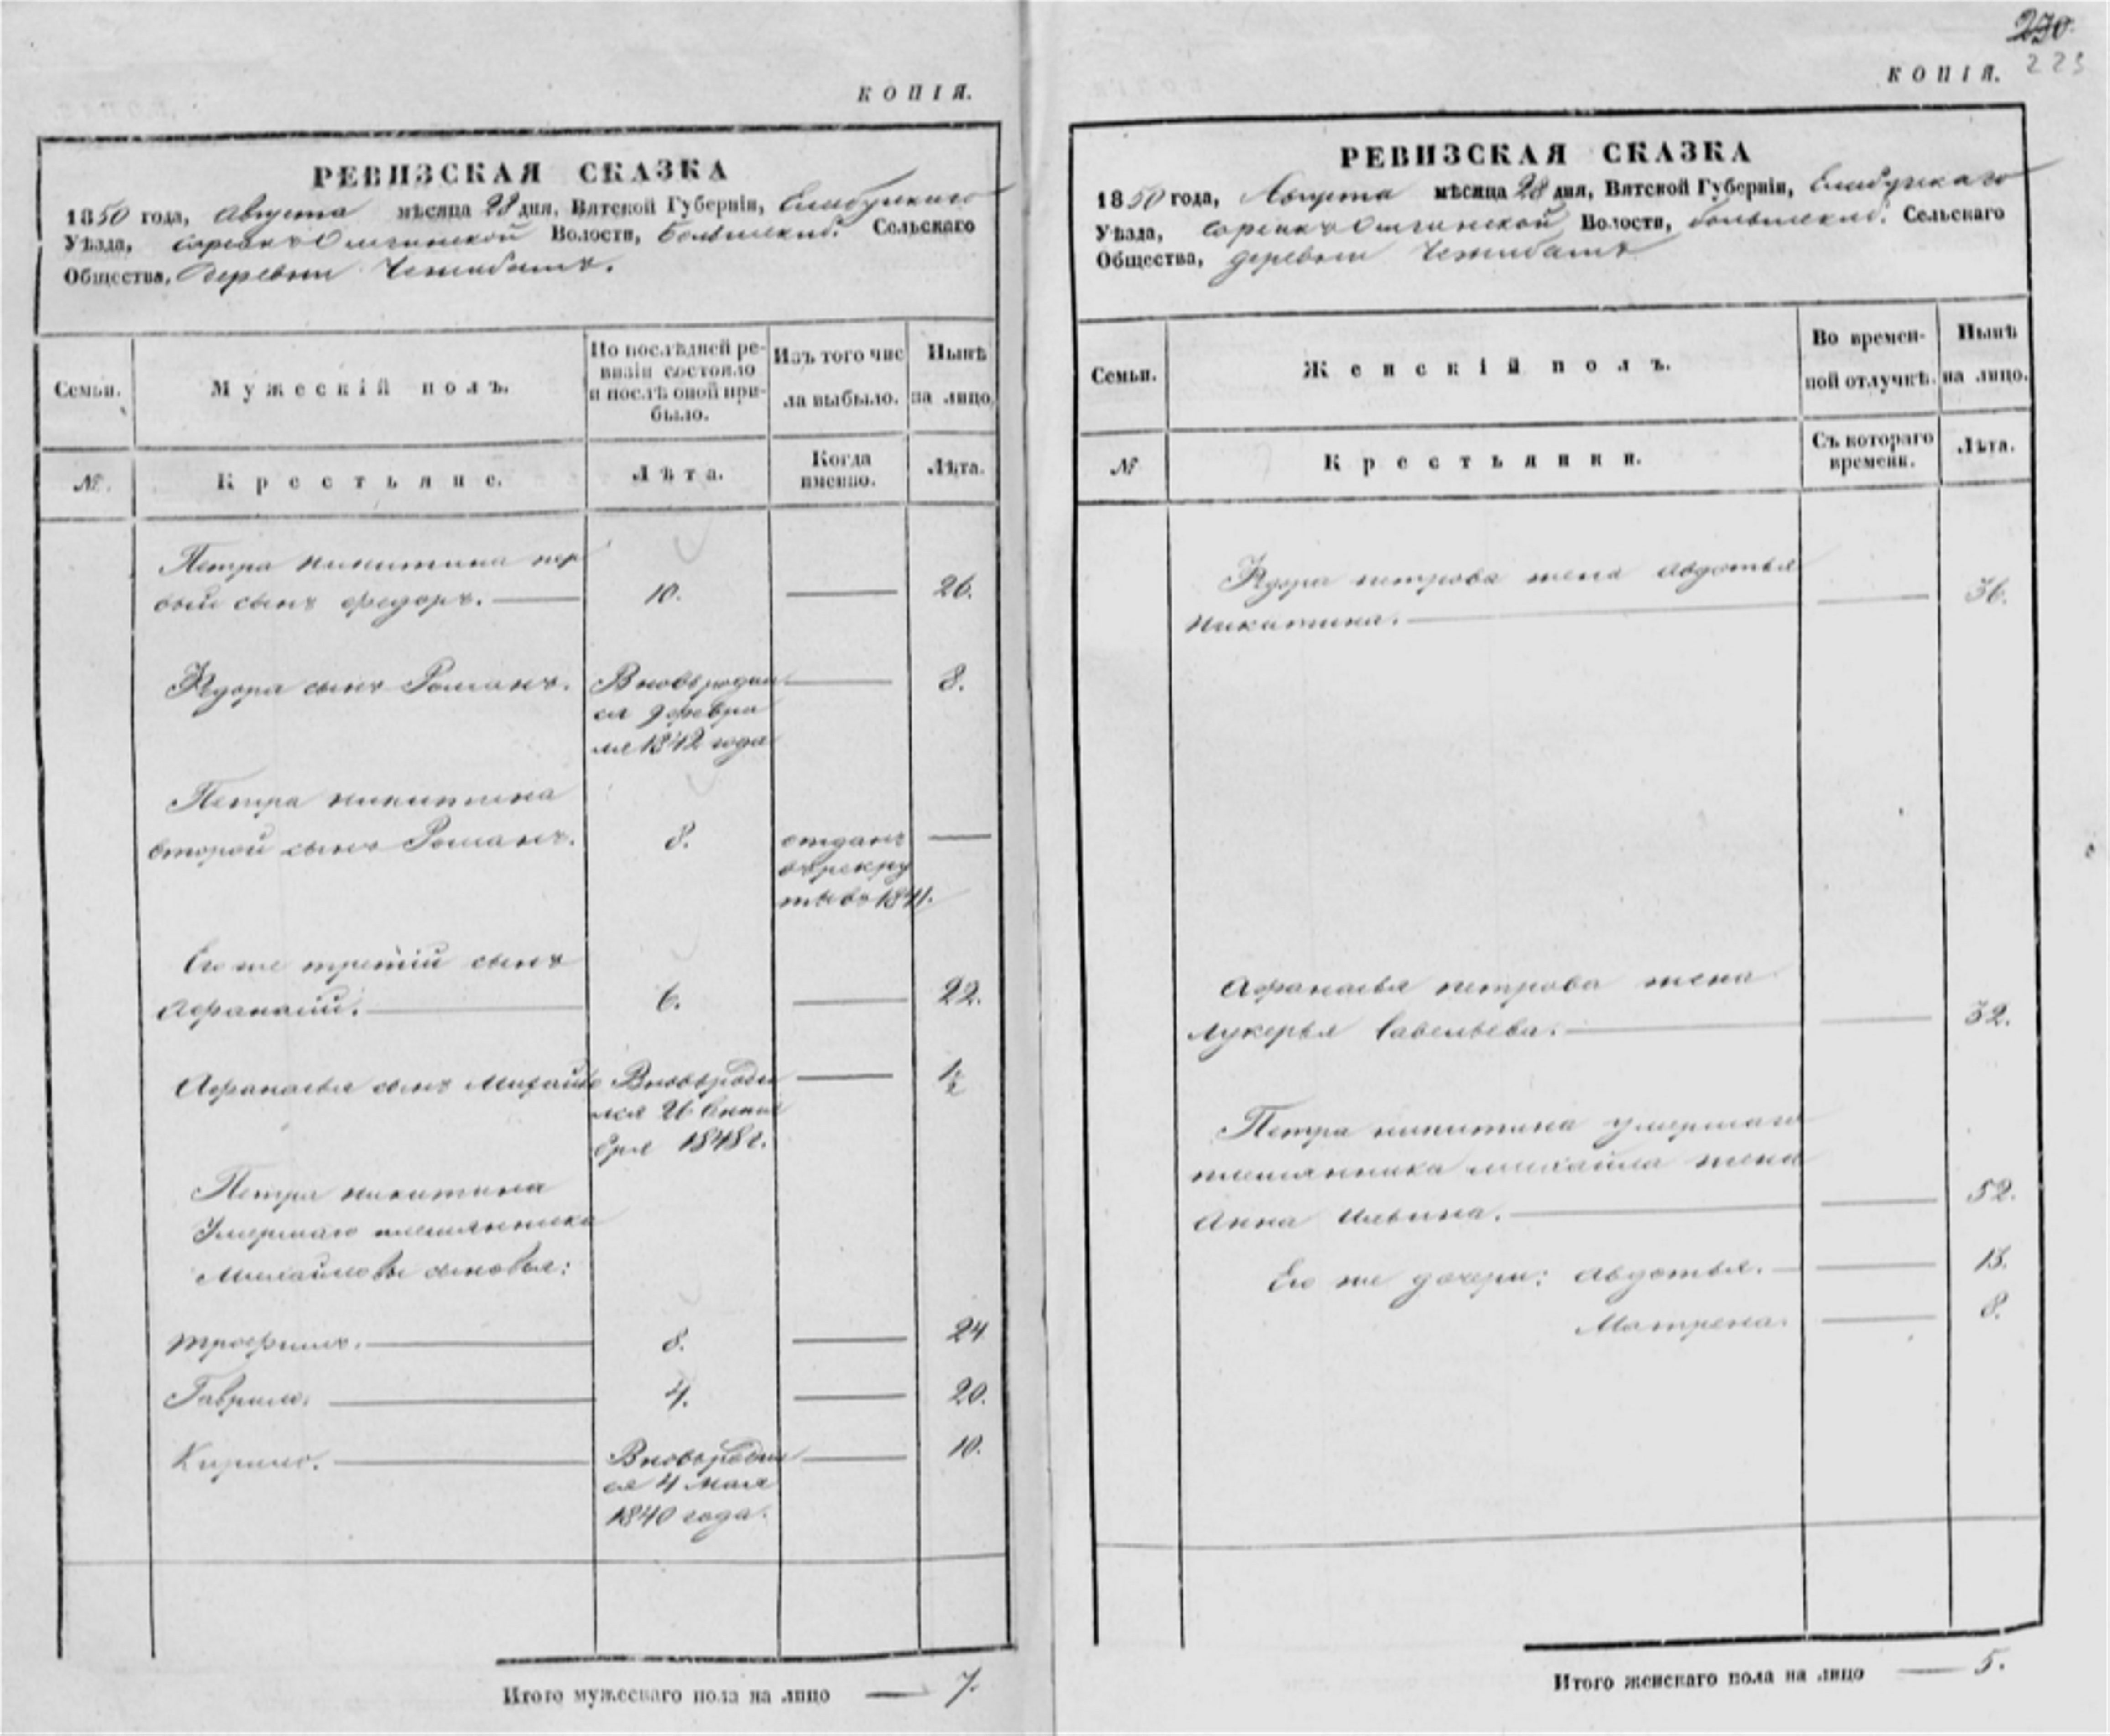 КОПІЯ.
РЕВИЗСКАЯ СКАЗКА
1850 года, Августа мѣсяца 28 дня, Вятской Губерніи, Елабужскаго
Уѣзда, Волости, Большекиб. Сельскаго
Общества, Деревни
Семьи.
Мужескій полъ.
По послѣдней ре-
визіи состояло
и послѣ оной при-
было.
Изъ того чис
ла выбыло.
Нынѣ
на лицо.
№.
Крестьяне.
Лѣта.
Когда
именно.
Лѣта.
Петра Никитина пер
вый сынъ Федоръ. 10. 26.
Ѳдора сынъ Романъ. Вновь родил 8.
ся 9 февра
ля 1842 года
Петра Никитина
второй сынъ Романъ. 8. отданъ
въ рекру
ты въ 1841.
Его же третій сынъ
Афанасій. 6. 22.
Афанасья сынъ Михайло Вновь роди 1½
лся 26 Сентя
бря 1848 г.
Петра Никитина
Умершаго племянника
Михайловы сыновья:
Трофимъ. 8. 24
Гаврило. 4. 20.
Кирило. Вновь родил 10.
ся 4 мая
1840 года.
Итого мужескаго пола на лицо 7.
270.
223
КОПІЯ.
РЕВИЗСКАЯ СКАЗКА
1850 года, Августа мѣсяца 28 дня, Вятской Губерніи, Елабужскаго
Уѣзда, Волости, Большекиб. Сельскаго
Общества, деревни
Семьи.
Женскій полъ.
Во времен-
ной отлучкѣ.
Нынѣ
на лицо.
№
Крестьянки.
Съ котораго
времени.
Лѣта.
Ѳдора петрова жена Авдотья
Никитина. 36.
Афанасья петрова жена
Лукерья Савельева. 32.
Петра никитина умершаго
племянника михайла жена
Анна Ильина. 52.
Его же дочери: Авдотья. 13.
Матрена. 8.
Итого женскаго пола на лицо 5.